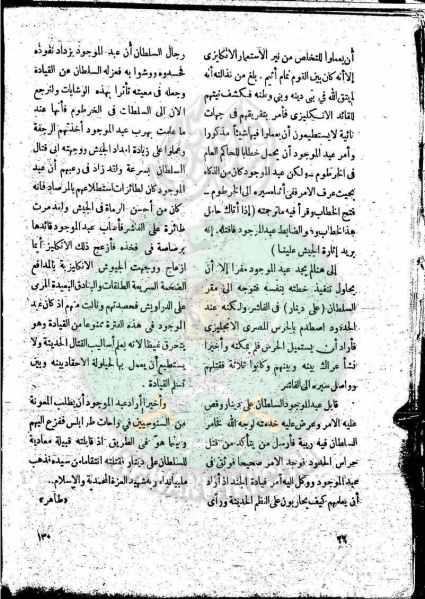 أن يعملوا للتخلص من نير الاستعمار الانكليزى
إلا أنه كان بين القوم تمام أثيم. بلغ من نذالته أنه
لم يتق الله فى بنى دينه وبنى وطنه فكشف نيتهم
للقائد الانكليزى فأمر بتفريقهم فى جهات
نائية لا يستطيعون أن يعملوا فيها شيئاً مذكورا
وأمر عبد الموجود أن يحمل خطابا للحاكم العام
فى الخرطوم ولكن عبد الموجود كان من الذكاء
بحيث عرف الأمر ففى أثناء سيره إلى الخرطوم
فتح الخطاب وقرأ فيه ما ترجمته (إذا أتاك حامل
هذا الخطاب وهو الضابط عبد الموجود فاقتله. إنه
يريد إثارة الجيش علينا)
إلى هنا لم يجد عبد الموجود مفرا إلا أن
يحاول تنفيذ خطته بنفسه فتوجه الى مقر
السلطان (على دينار) فى الفاشر ولكنه عند
الحدود اصطدم بالحرس المصرى الانجليزى
فأراد أن يستميل الحرس فلم يمكنه وأخيرا
نشأ عراك بينه وبينهم وكانوا ثلاثة فقتلهم
وواصل سيره الى الفاشر
قابل عبد الموجود السلطان على دينار وقص
عليه الأمر وعرض عليه خدمته لوجه الله فخامر
السلطان فيه ريبة فأرسل من يتأكد من قتل
حراس الحدود فوجد الأمر صحيحا فوثق فى
عبد الموجود ووكل اليه أمر قيادة الجند اذ أراد
أن يعلمهم كيف يحاربون على النظم الحديثة ورأى
٢٢
رجال السلطان أن عبد الموجود يزداد نفوذه
فحسدوه ووشوا به فعزله السلطان عن القيادة
وجعله فى معيته تأثرا بهذه الوشايات ولنرجع
الآن إلى السلطات فى الخرطوم فأنها عند
ما علمت بهرب عبد الموجود أخذتهم الرجفة
وعملوا على زيادة امداد الجيش ووجهته الى قتال
السلطان بسرعة ولقد زاد فى رعبهم أن عبد
الموجود كان لطائرات استطلاعهم بالمرصاد فانه
كان من أحسن الرماة فى الجيش ولقد مرت
طائرة على الفاشر فأصاب عبد الموجود قائدها
برصاصة فى فخذه فأزعج ذلك الانكليز أيما
ازعاج ووجهت الجيوش الانكليزية بالمدافع
الضخمة السريعة الطلقات والبنادق البعيدة المرمى
على الدراويش فحصدتهم ونالت منهم اذ كان عبد
الموجود فى هذه الفترة ممنوعا من القيادة وهو
يتحرق غيظا لانه يعلم أساليب القتال الحديثة ولا
يستطيع أن يعمل بها لحيلولة الاحقاد بينه وبين
تسلم القيادة.
وأخيرا أراد عبد الموجود أن يطلب المعونة
من السنوسيين فى واحات طرابلس ففزع اليهم
وبينما هو فى الطريق اذ قابلته قبيلة معادية
للسلطان على دينار فقتلته انتقاما من سيده فذهب
ملبيا نداء ربه شهيد العزة المحمدية والاسلام..
«طاهر»
١٣٠